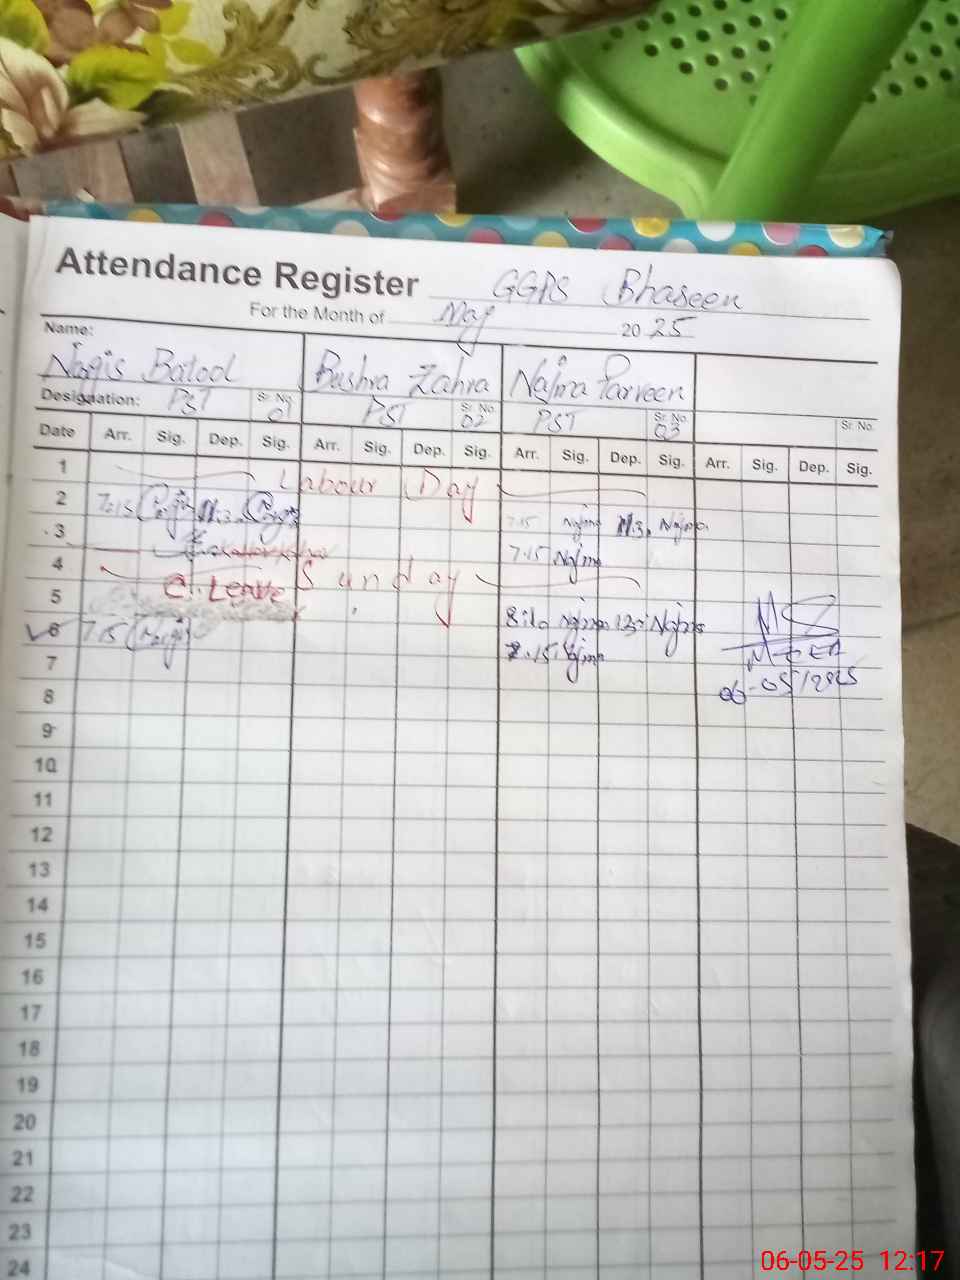 Attendance Register GGPS Bhaseen
For the Month of May 2025
Name:
Nargis Batool Bushra Zahra Najma Parveen
Designation: PST Sr. No. 01 PST Sr. No. 02 PST Sr. No. 03 Sr. No.
Date Arr. Sig. Dep. Sig. Arr. Sig. Dep. Sig. Arr. Sig. Dep. Sig. Arr. Sig. Dep. Sig.
1 Labour Day
2 7:15 Nargis 7.15 Najma
3 7.15 Najma
4 Sunday
5 C. Leave Najma Najma
6 7.15 Nargis 7.15 Najma
7
06-05/2025
8
9
10
11
12
13
14
15
16
17
18
19
20
21
22
23
24
06-05-25 12:17